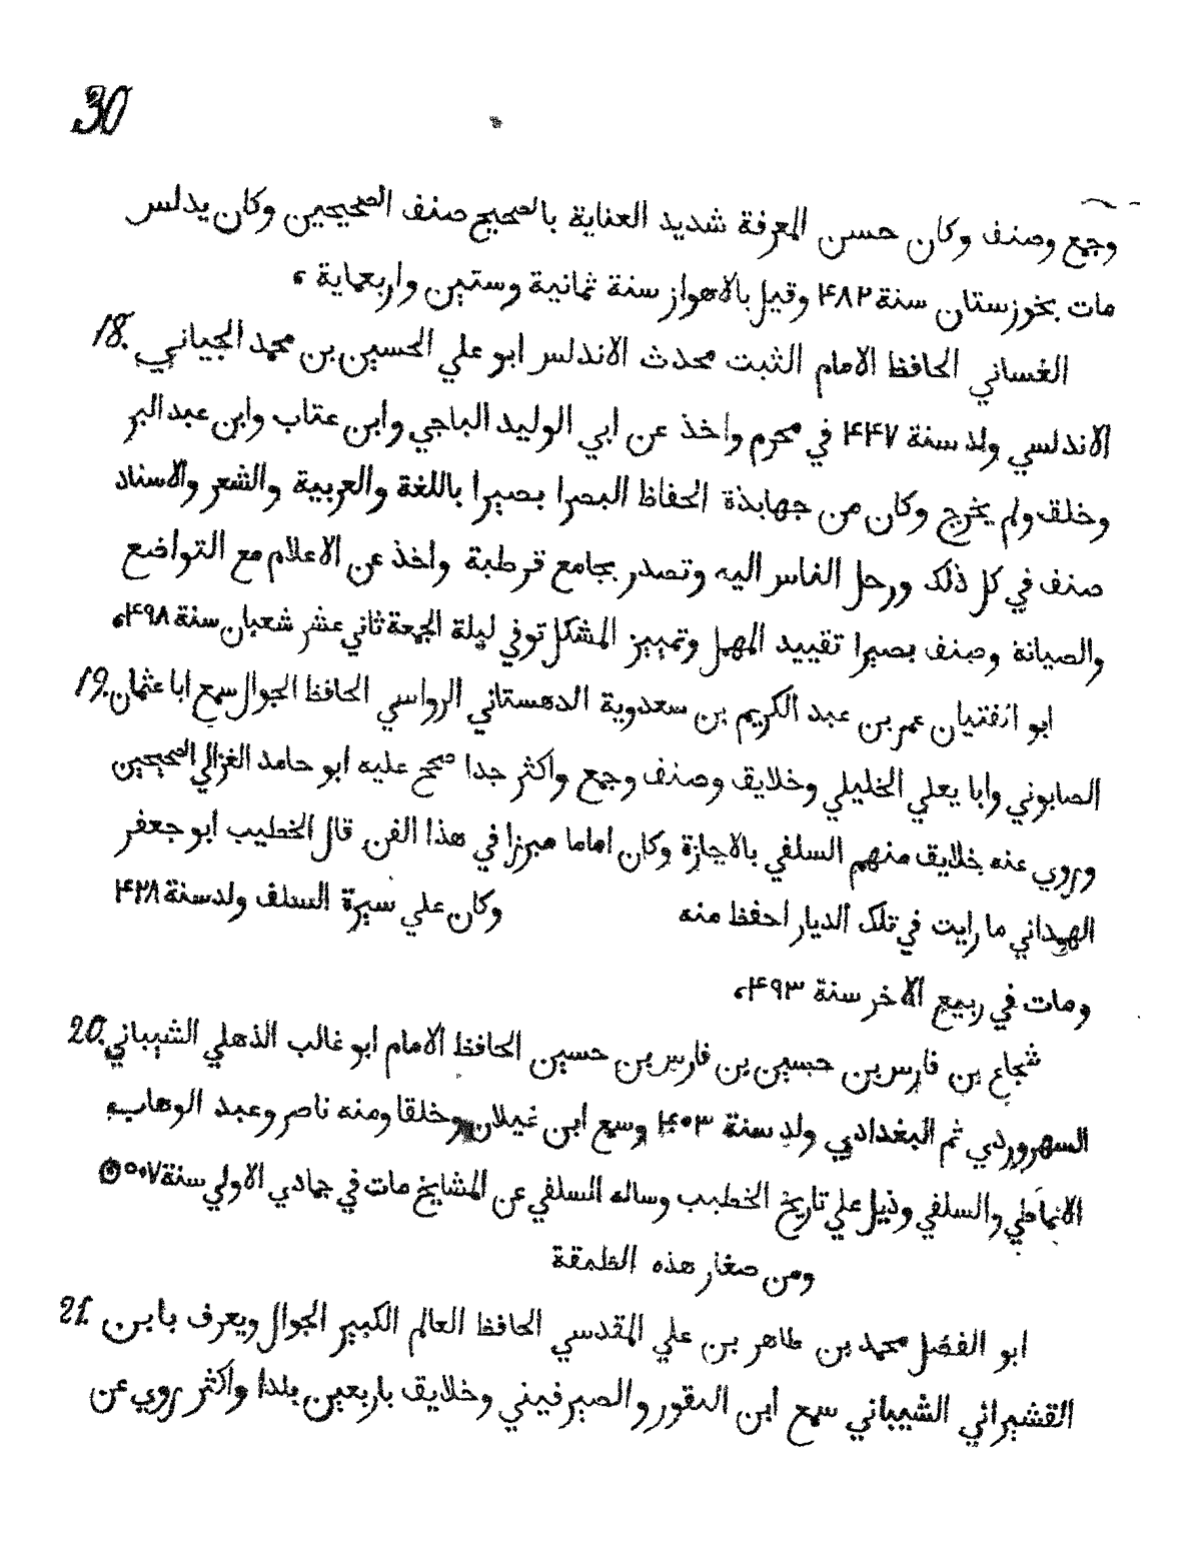 30
وجمع وصنف وكان حسن المعرفة شديد العناية بالصحيح صنف الصحيحين وكان يدلس
مات بخوزستان سنة ۴۸۲ وقيل بالاهواز سنة ثمانية وستين واربعماية ،
18. الغساني الحافظ الامام الثبت محدث الاندلس ابو علي الحسين بن محمد الجياني
الاندلسي ولد سنة ۴۴۷ في محرم واخذ عن ابي الوليد الباجي وابن عتاب وابن عبد البر
وخلق ولم يخرج وكان من جهابذة الحفاظ البصرا بصيرا باللغة والعربية والشعر والاسناد
صنف في كل ذلك ورحل الناس اليه وتصدر بجامع قرطبة واخذ عن الاعلام مع التواضع
والصيانة وصنف بصيرا تقييد المهمل وتمييز المشكل توفي ليلة الجمعة ثاني عشر شعبان سنة ۴۹۸،
19. ابو انفتيان عمر بن عبد الكريم بن سعدوية الدهستاني الرواسي الحافظ الجوال سمع ابا عثمان
الصابوني وابا يعلي الخليلي وخلايق وصنف وجمع واكثر جدا صحح عليه ابو حامد الغزالي الصحيحين
وروي عنه خلايق منهم السلفي بالاجازة وكان اماما مبرزا في هذا الفن قال الخطيب ابو جعفر
الهمداني ما رايت في تلك الديار احفظ منه وكان علي سيرة السلف ولد سنة ۴۲۸
ومات في ربيع الاخر سنة ۴۹۳،
20. شجاع بن فارس بن حسين بن فارس بن حسين الحافظ الامام ابو غالب الذهلي الشيباني
السهروردي ثم البغدادي ولد سنة ۴۰۳ وسمع ابن غيلان وخلقا ومنه ناصر وعبد الوهاب
الانماطي والسلفي وذيل علي تاريخ الخطيب وساله السلفي عن المشايخ مات في جمادي الاولي سنة ۵۰۷
ومن صغار هذه الطبقة
21. ابو الفضل محمد بن طاهر بن علي المقدسي الحافظ العالم الكبير الجوال ويعرف بابن
القشيرائي الشيباني سمع ابن النقور والصيرفيني وخلايق باربعين بلدا واكثر روي عن